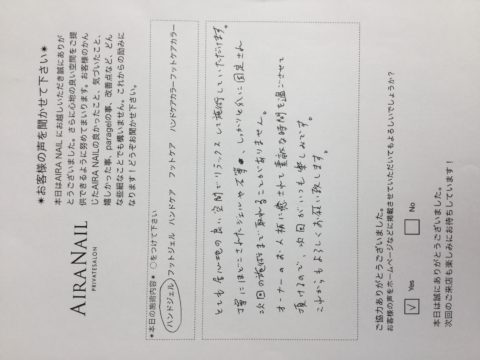 AIRA NAIL
PRIVATESALON
*お客様の声を聞かせて下さい*
本日はAIRA NAIL にお越しいただき誠にありが
とうございました。さらに心地の良い空間をご提
供できるように努めてまいります。お客様のかん
じたAIRA NAILの良かったこと、気づいたこと、
嬉しかった事、paragelの事、改善点など、どん
な些細なことでも構いません。これからの励みに
なります！どうぞお聞かせ下さい。
*本日の施術内容* ○をつけて下さい
ハンドジェル フットジェル ハンドケア フットケア ハンドケアカラー フットケアカラー
とても居心地の良い空間でリラックスして施術していただけます。
丁寧にほどこされたジェルや石等も、しっかりと爪に固定され
次回の施術まで取れることがありません。
オーナーのお人柄に癒されて素敵な時間を過ごさせて
頂けるので、次回がいつも楽しみです。
これからもよろしくお願い致します。
ご協力ありがとうございました。
お客様の声をホームページなどに掲載させていただいてもよろしいでしょうか？
Yes No
本日は誠にありがとうございました。
次回のご来店も楽しみにお待ちしています！